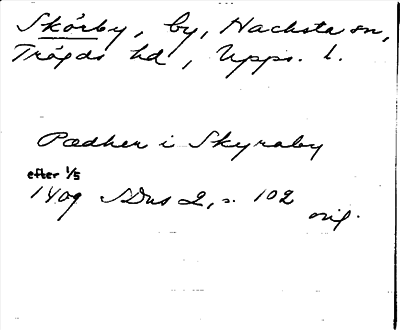 Skörby, by, Hacksta sn,
Trögds hd, Upps. l.
Pædher i Skyraby
efter 1/5
1409 SDns 2, s. 102
orig.